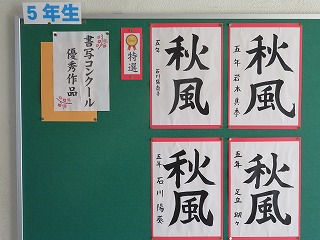 5年生
書写コンクール
優秀作品
特選
秋風
五年
秋風
五年 岩本
秋風
五年 石川陽葵
秋風
五年 足立 瑚々